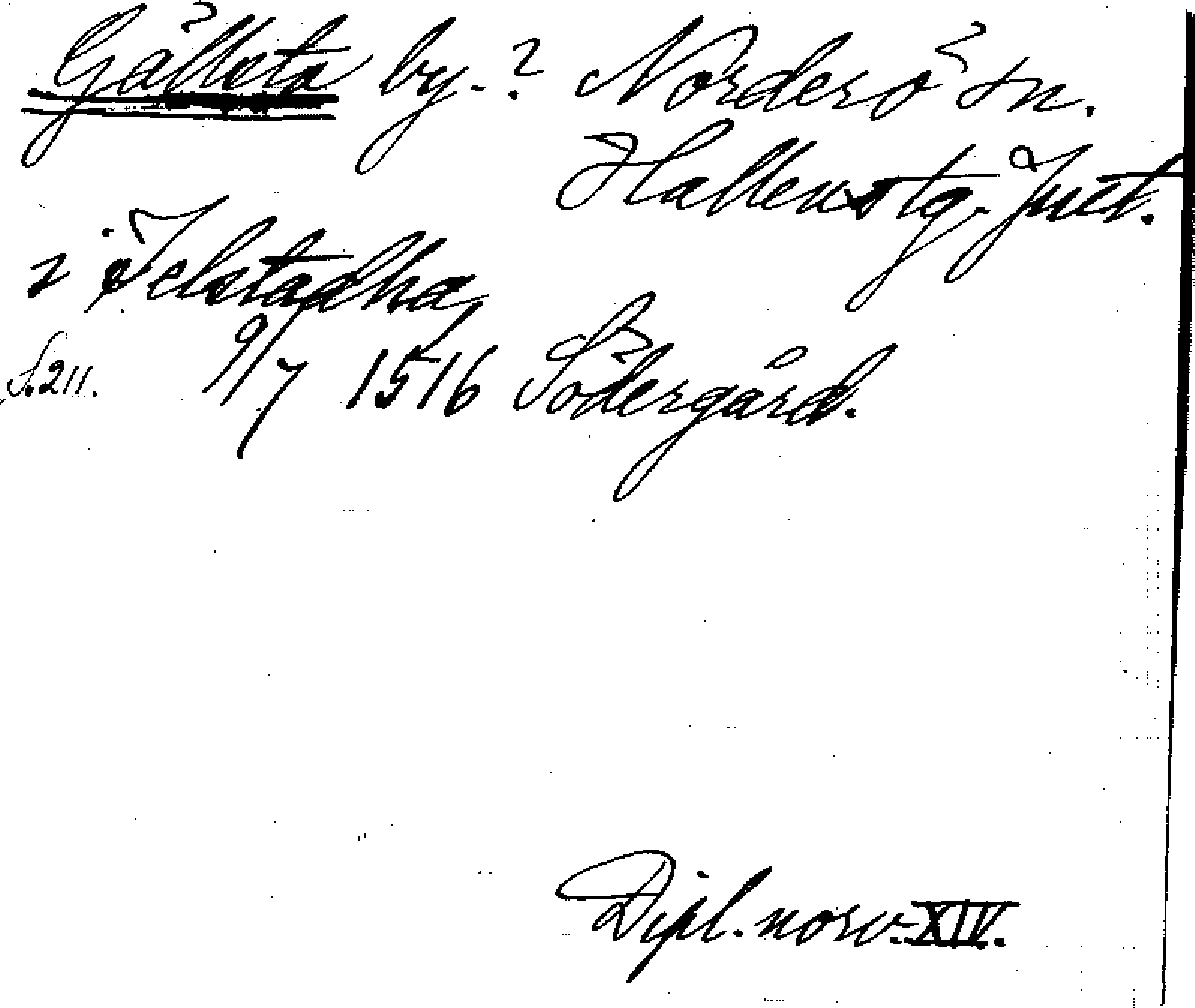 Gällsta by.? Norderö sn.
Hallens tg. Juct.
i Jelstadha,
S. 211. 9/7 1516 Södergård.
Dipl. norv. XIV.